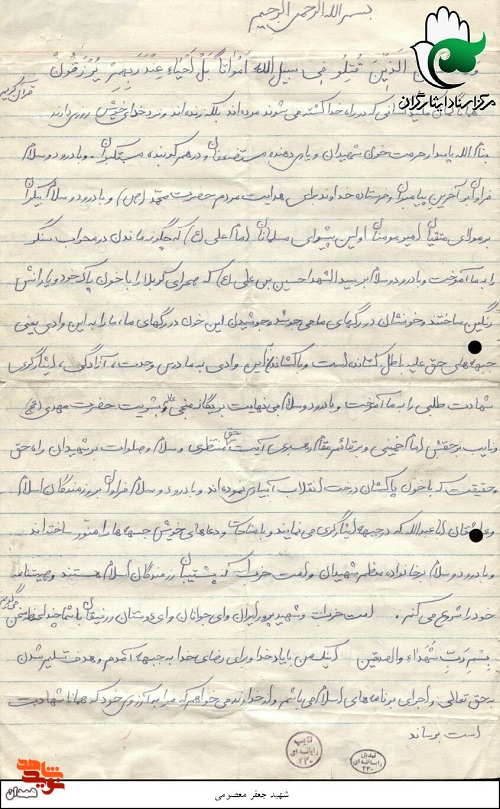 بسم الله الرحمن الرحیم
مرکز اسناد ایثارگران
الَّذینَ قُتِلُو فِی سبیل الله اَمواتاً بَلْ اَحْیاءِ عِنْدَ رَبِهِمْ یُرْزَقُونْ قرآن کریم
کسانی که در راه خدا کشته می شوند مرده اند بلکه زنده اند و نزد خدای خویش روزی دارند
بنام الله پاسدار حرمت خون شهیدان و یاری دهنده مستضعفان و درهم کوبنده مستکبران. و با درود و سلام
فراوان بر آخرین پیامبران و فرستاده خداوند برای هدایت مردم حضرت محمد (ص) و با درود و سلام بیکران
بر مولای متقیان امیر مومنان اولین پیشوای مسلمانان امام علی (ع) که چگونه ماندن در محراب سنگر
را به ما آموخت و با درود و سلام بر سید الشهدا حسین بن علی (ع) که صحرای کربلا را با خون پاک خود و یارانش
رنگین ساختند و خونشان در رگهای ما می جوشد و جوشیدن این خون در رگهای ما، ما را به این وادی یعنی
جبهه های حق علیه باطل کشانده است و با کشاندن این وادی به ما درس وحدت، آزادگی، ایثارگری
شهادت طلبی را به ما آموخت و با درود و سلام بی نهایت بر یگانه منجی عالم بشریت حضرت مهدی (عج)
و نایب برحقش امام خمینی و بر قائم مقام رهبری آیت الله منتظری و سلام و صلوات بر شهیدان راه حق
و حقیقت که با خون پاکشان درخت انقلاب آبیاری نموده اند و با درود و سلام فراوان بر رزمندگان اسلام
و عاشقان ابا عبدالله که در جبهه ایثارگری می نمایند و با مناجات و دعاهای خویش جبهه ها را منور ساخته اند
و با درود و سلام بر خانواده معظم شهیدان و امت حزب الله که پشتیبان رزمندگان اسلام هستند وصیتنامه
خود را شروع می کنم. امت حزب الله و شهید پرور ایران و ای جوانان و ای دوستان و رفیقان با شما چند لحظه سخن می گویم
بسم ربِّ شهداءِ والصدقین اینک من با یاد خدا و برای رضای خدا به جبهه آمدم و هدف تسلیم شدن
به حق تعالی و اجرای برنامه های اسلام می باشم و از خداوند می خواهم که مرا به آرزوی خود که همانا شهادت
است برساند
تایپ رایانه ای ۲۳۰
تبدیل رایانه ای ۲۳۰
نوید شاهد
همدان
شهید جعفر معصومی